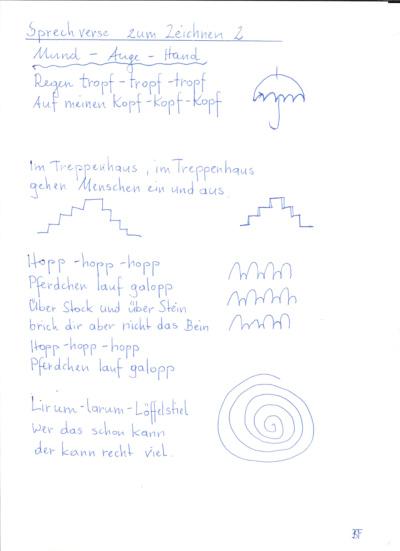 Sprechverse zum Zeichnen 2
Mund - Auge - Hand
Regen tropf - tropf - tropf
Auf meinen Kopf - Kopf - Kopf
Im Treppenhaus, im Treppenhaus
gehen Menschen ein und aus.
Hopp - hopp - hopp
Pferdchen lauf galopp
Über Stock und über Stein
brich dir aber nicht das Bein
Hopp - hopp - hopp
Pferdchen lauf galopp
Lirum - larum - Löffelstiel
wer das schon kann
der kann recht viel.